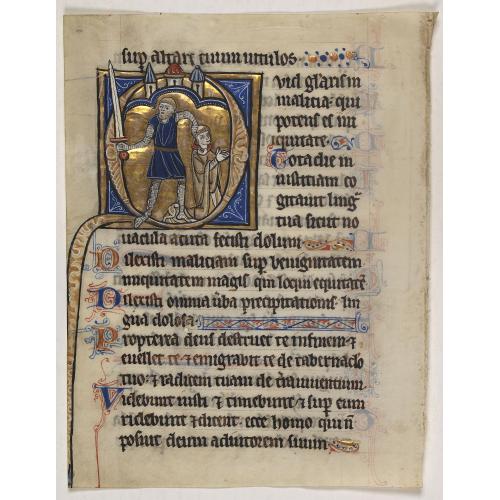 sup altare tuum uitulos.
uid gloriaris in
malicia: qui
potens es ini
quitate.
Tota die in
iustitiam co
gitauit ling̃
tua sicut no
uacula acuta fecisti dolum.
Dilexisti maliciam sup benignitatem
iniquitatem magis qm̃ loqui equitatẽ.
Dilexisti omnia ũba precipitationis lin
gua dolosa.
Propterea deus destruet te in finem ⁊
euellet te ⁊ emigrabit te de tabernaclo
tuo: ⁊ radicem tuam de tr̃a uiuentium.
Videbunt iusti ⁊ timebunt ⁊ sup eum
ridebunt ⁊ dicent: ecce homo qui ñ
posuit deum adiutorem suum